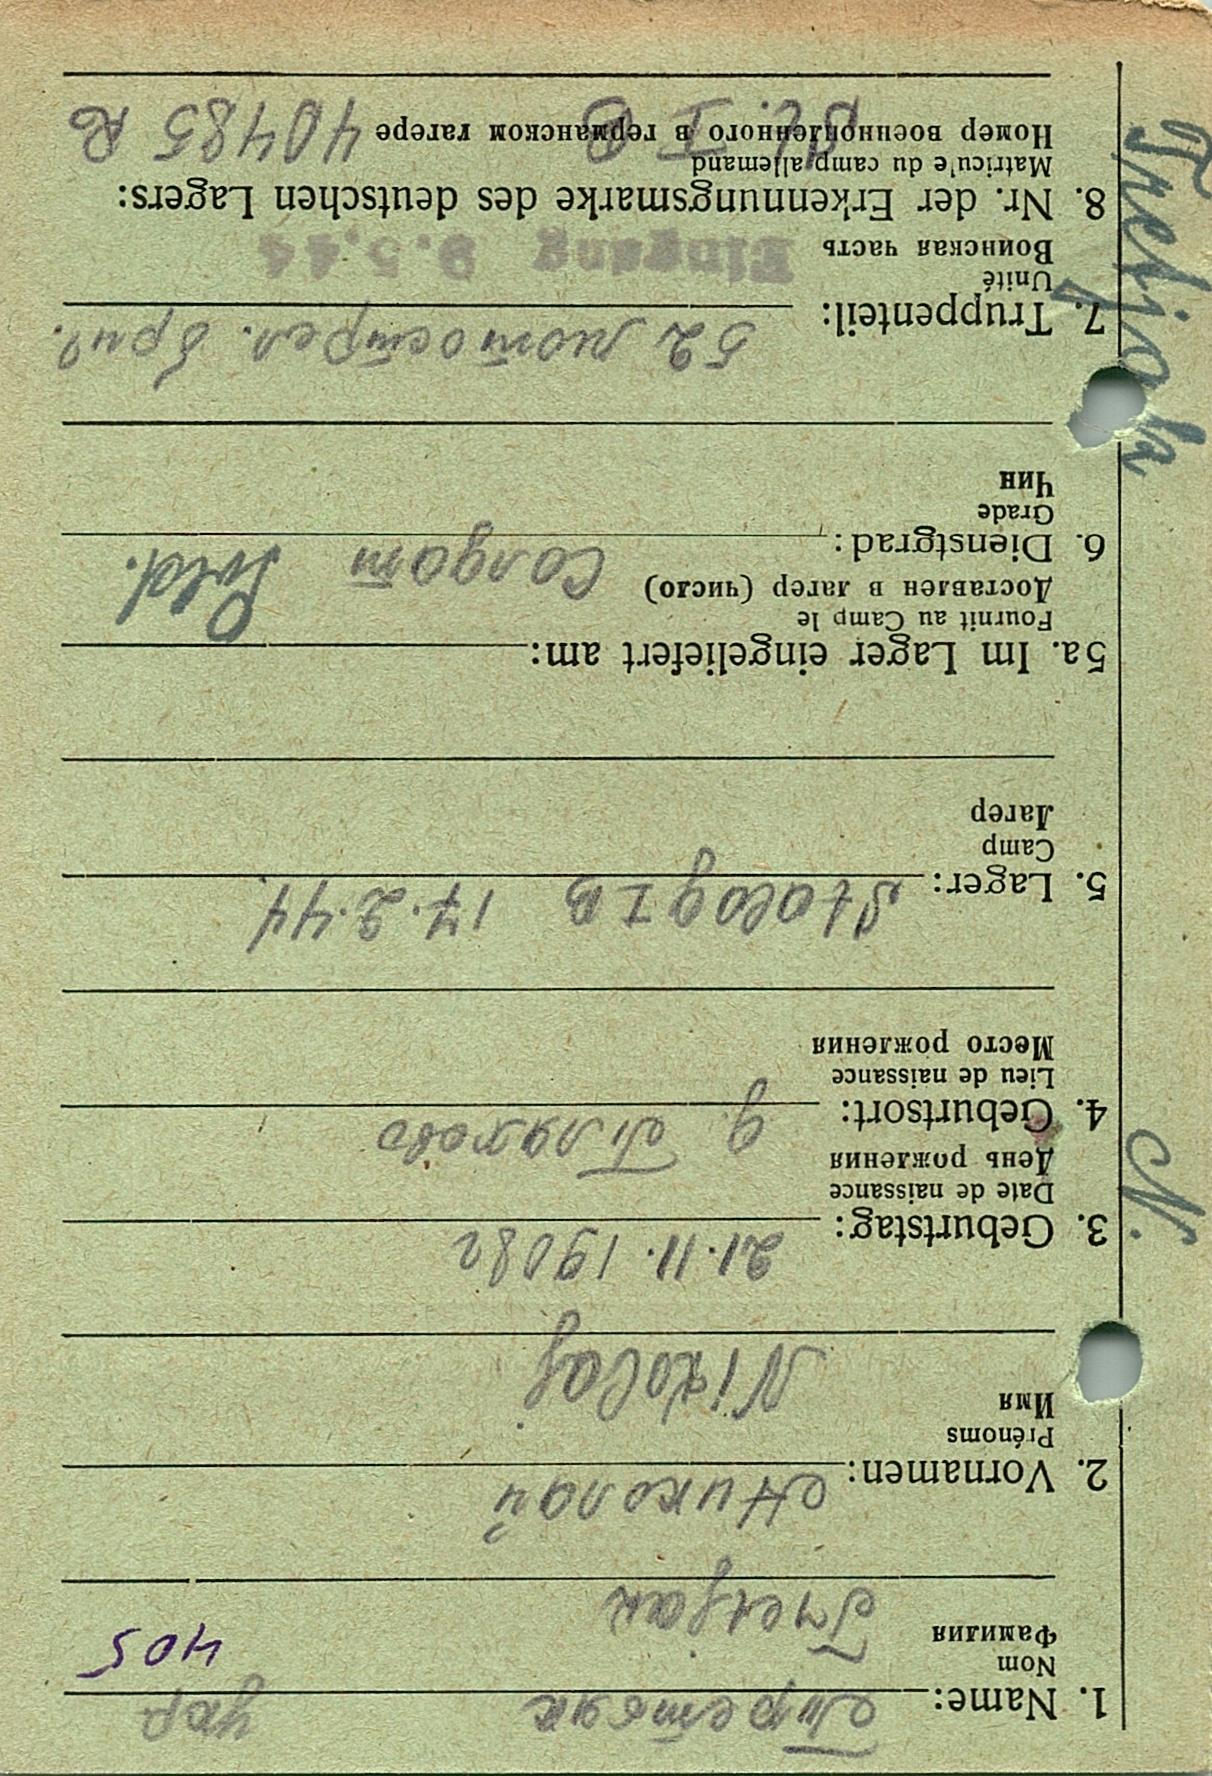 Tretjak N.
1. Name: Третяк укр
Nom
Фамилия
405
Tretjak
2. Vornamen: Николай
Prénoms
Имя
Nikolaj
3. Geburtstag: 21.11.1908г
Date de naissance
День рождения
4. Geburtsort: д.
Lieu de naissance
Место рождения
5. Lager: Stalag I B 17.2.44
Camp
Лагер
5a. Im Lager eingeliefert am:
Fournit au Camp le
Доставлен в лагер (число)
6. Dienstgrad: Солдат Sold.
Grade
Чин
7. Truppenteil: 52 мотострел. бриг.
Unité
Воинская часть
Eingang 9.5.44
8. Nr. der Erkennungsmarke des deutschen Lagers:
Matricu'e du camp allemand
Номер военнопленного в германском лагере 40485 R
St. I B